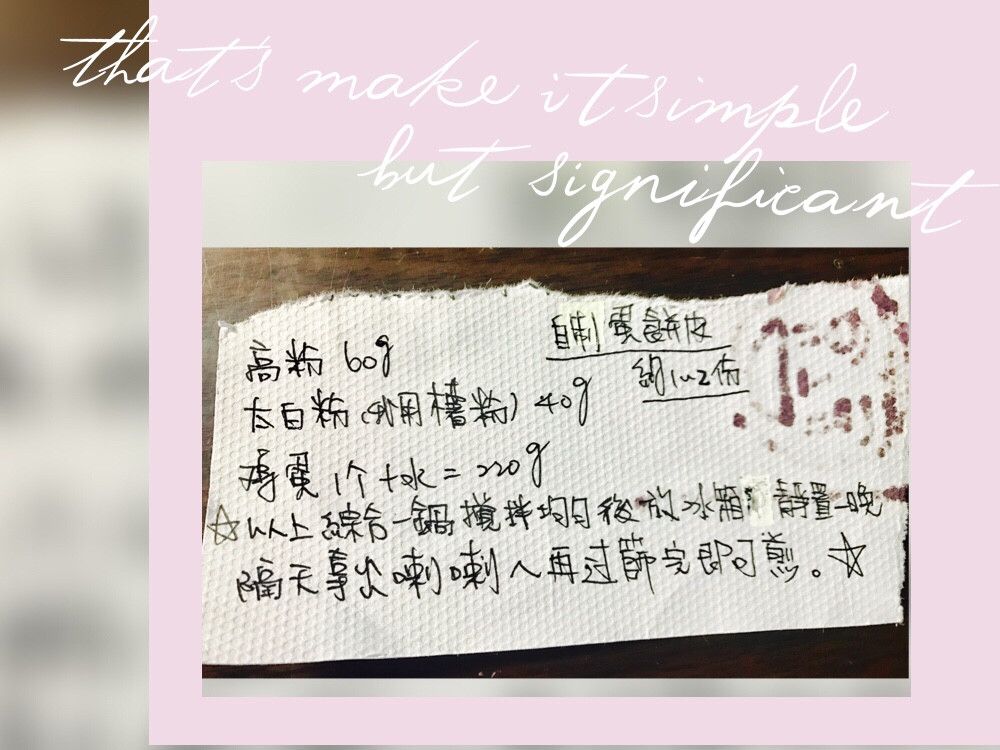 that's make it simple
but significant
自制蛋餅皮
約1~2份
高粉 60g
太白粉 (用粉) 40g
鸡蛋 1个+水=220g
☆以上綜合一鍋攪拌均勻後放冰箱靜置一晚
隔天拿出喇喇ㄟ再过篩完即可煎。☆